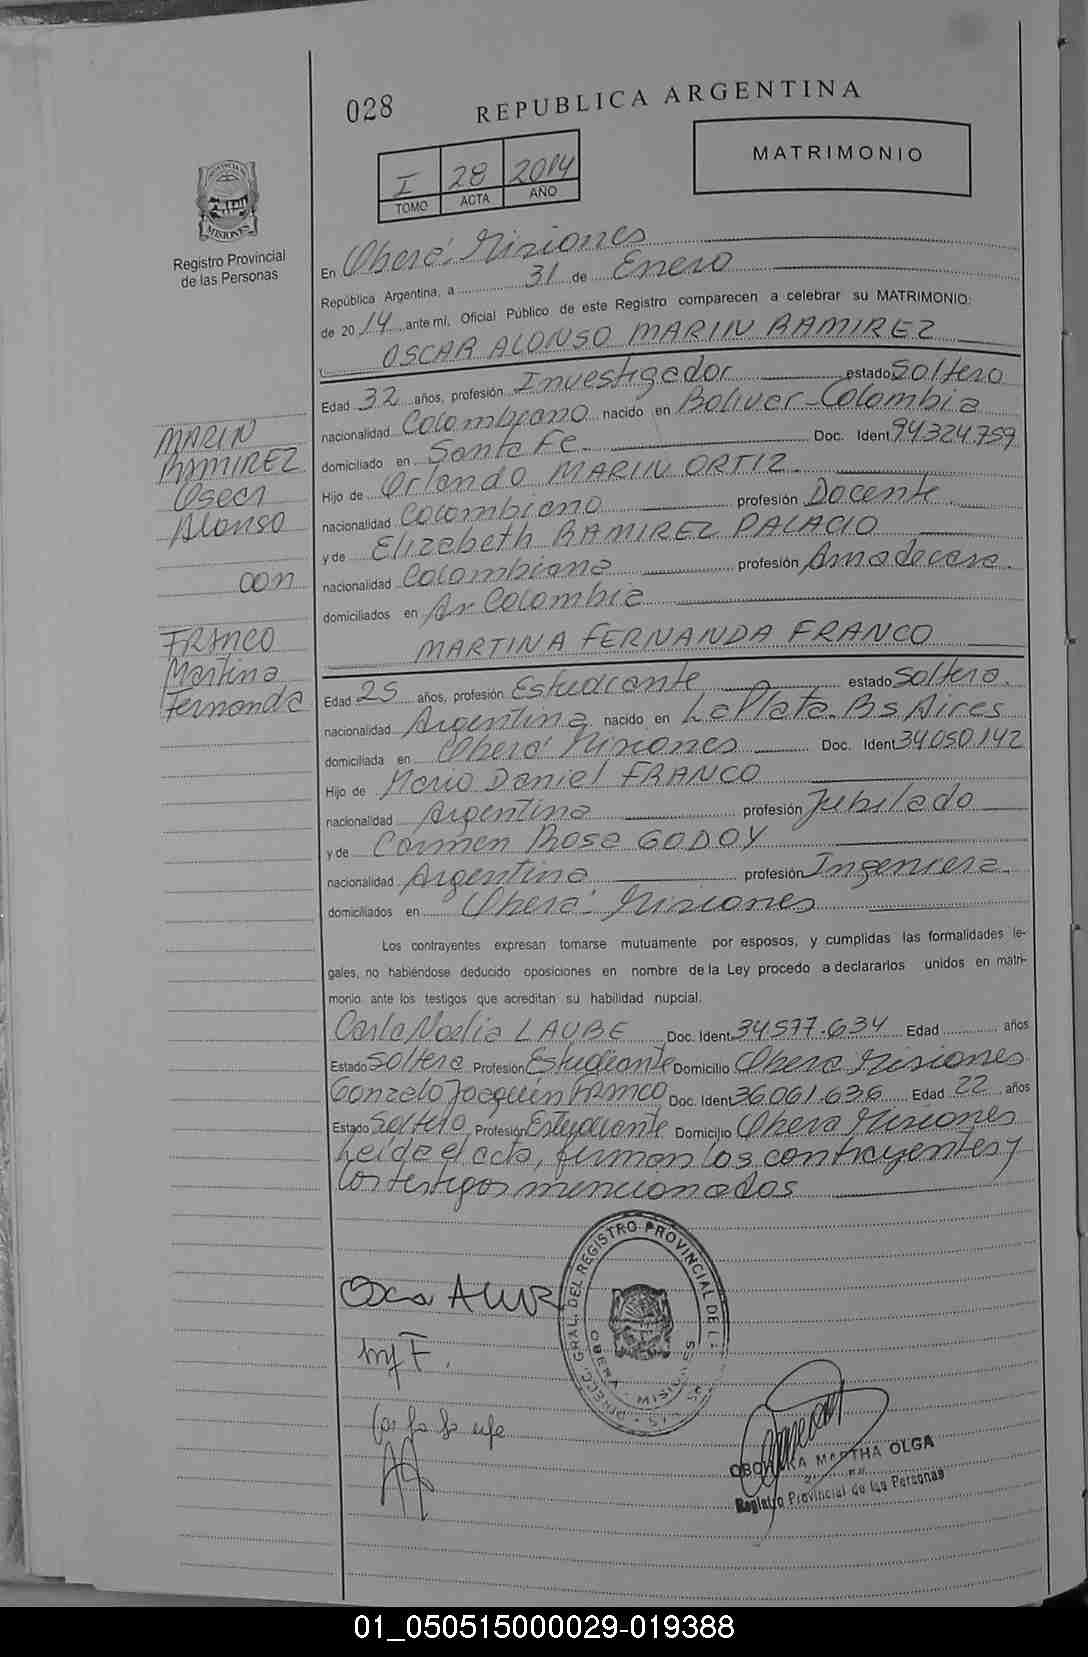 028
REPUBLICA ARGENTINA
MATRIMONIO
I 28 2014
TOMO ACTA AÑO
MISIONES
Registro Provincial
de las Personas
En Oberá. Misiones
República Argentina, a 31 de Enero
de 2014 ante mí, Oficial Público de este Registro comparecen a celebrar su MATRIMONIO:
OSCAR ALONSO MARIN RAMIREZ
Edad 32 años, profesión Investigador estado Soltero
nacionalidad Colombiano nacido en Boliver-Colombia
domiciliado en Santa Fe. Doc. Ident 94324759
Hijo de Orlando MARIN ORTIZ.
nacionalidad Colombiano profesión Docente.
y de Elizabeth RAMIREZ PALACIO
nacionalidad Colombiana profesión Ama de casa.
domiciliados en Colombia
MARTINA FERNANDA FRANCO
Edad 25 años, profesión Estudiante estado Soltera.
nacionalidad Argentina nacido en La Plata. Bs Aires
domiciliada en Oberá Misiones Doc. Ident 34050142
Hijo de Mario Daniel FRANCO
nacionalidad Argentina profesión Jubilado
y de Carmen Rosa GODOY
nacionalidad Argentina profesión Ingeniera.
domiciliados en Oberá- Misiones
MARIN
RAMIREZ
Oscar
Alonso
con
FRANCO
Martina
Fernanda
Los contrayentes expresan tomarse mutuamente por esposos, y cumplidas las formalidades le-
gales, no habiéndose deducido oposiciones en nombre de la Ley procedo a declararlos unidos en matri-
monio ante los testigos que acreditan su habilidad nupcial.
Carla Noelia LAUBE Doc. Ident 34577.634 Edad años
Estado Soltera Profesión Estudiante Domicilio Obera Misiones
Gonzalo Joaquín FRANCO Doc. Ident 36.061.636 Edad 22 años
Estado Soltero Profesión Estudiante Domicilio Obera Misiones
Leida el acta, firman los contrayentes y
los testigos mencionados
DIRECC. GRAL. DEL REGISTRO PROVINCIAL DE L
OBERA - MISIONES
MARTHA OLGA
Registro Provincial de las Personas
01_050515000029-019388